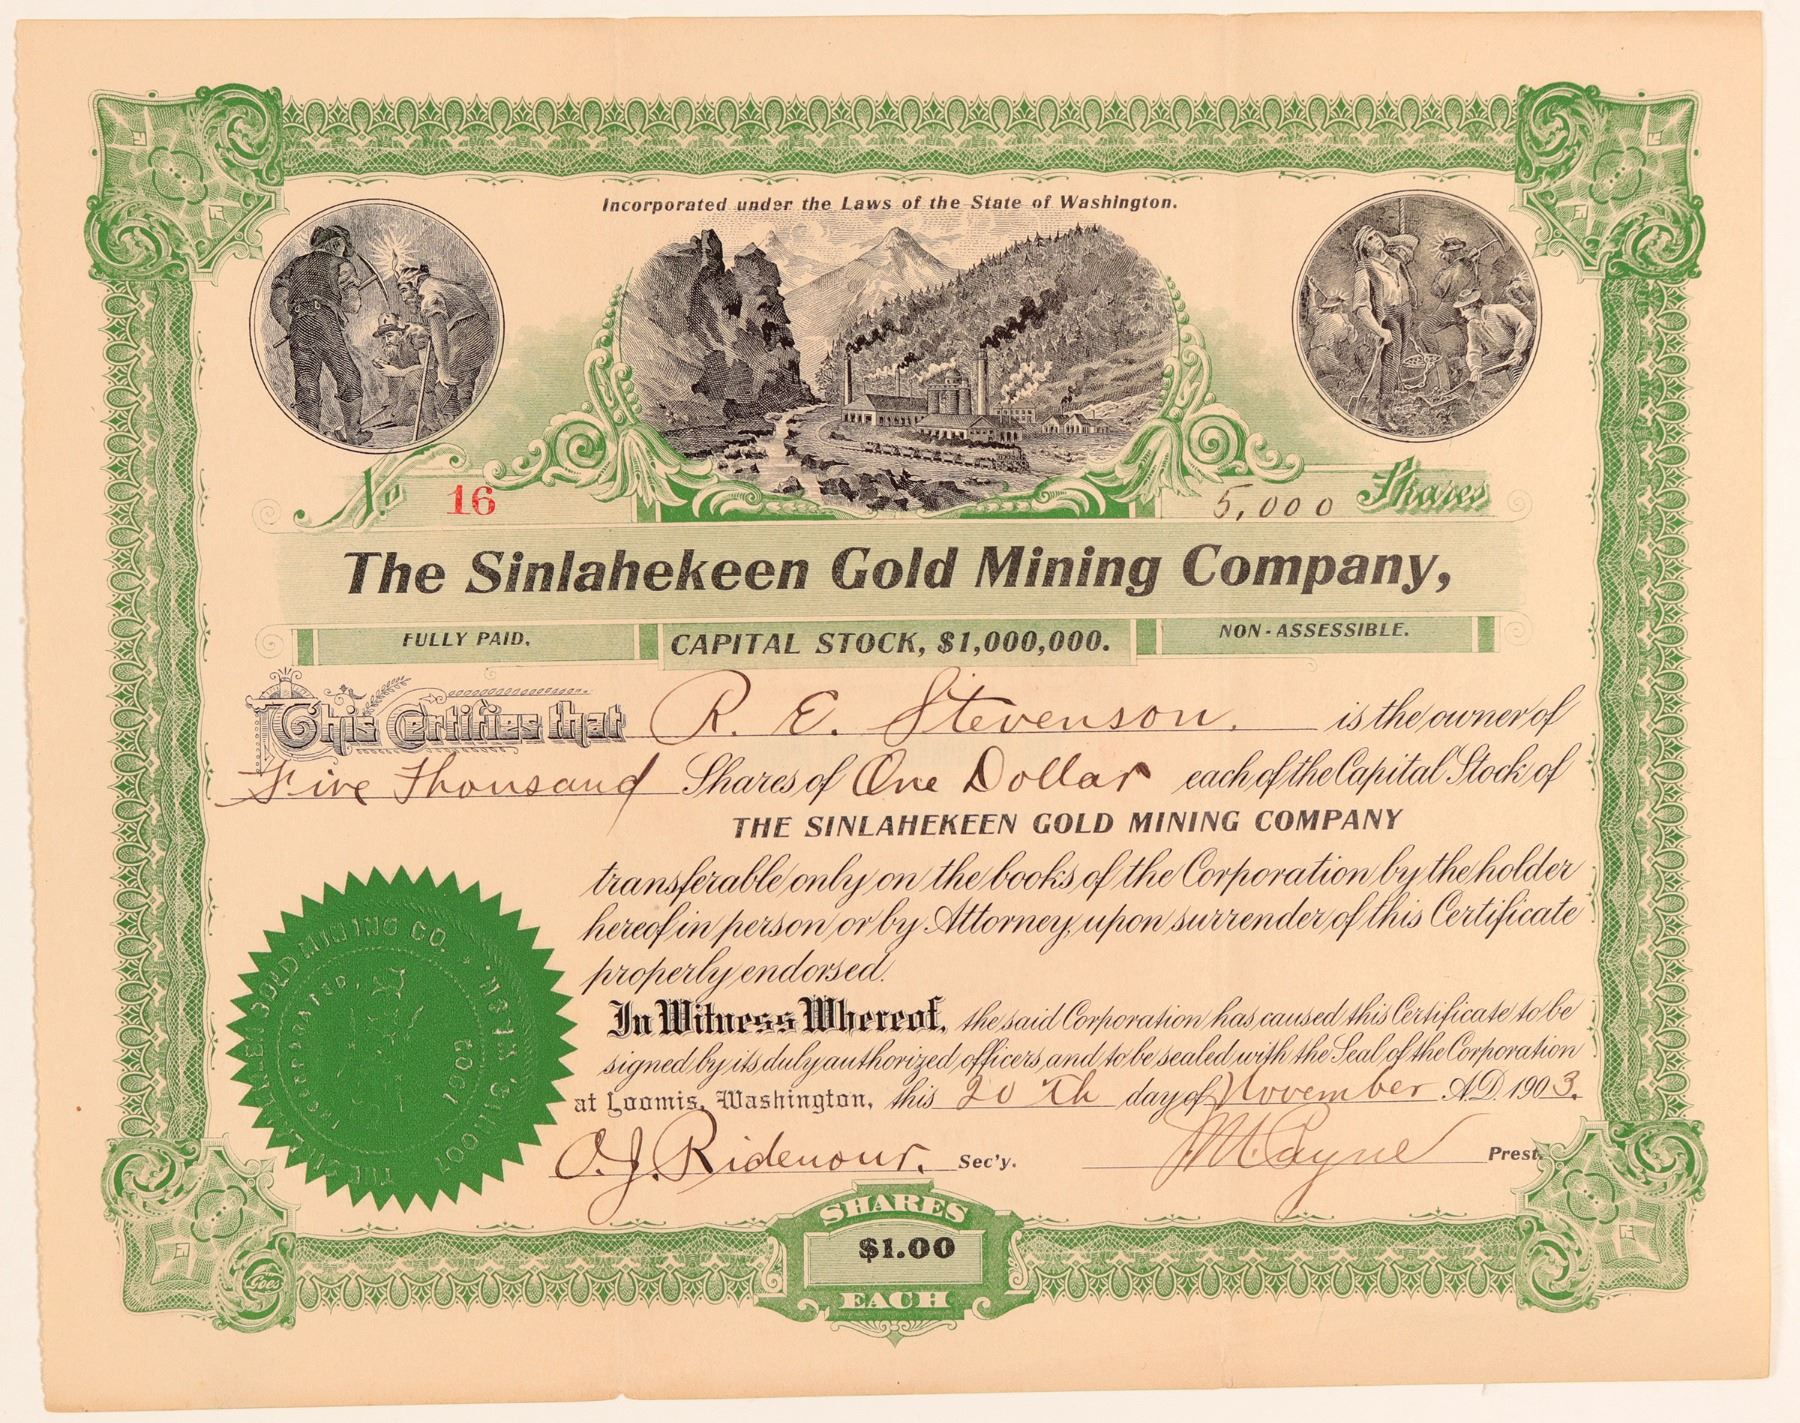 Incorporated under the Laws of the State of Washington.
No 16
5,000 Shares
The Sinlahekeen Gold Mining Company,
FULLY PAID.
CAPITAL STOCK, $1,000,000.
NON-ASSESSIBLE.
This Certifies that R. E. Stevenson. is the owner of
Five Thousand Shares of One Dollar each of the Capital Stock of
THE SINLAHEKEEN GOLD MINING COMPANY
transferable only on the books of the Corporation by the holder
hereof in person or by Attorney, upon surrender of this Certificate
properly endorsed.
In Witness Whereof, the said Corporation has caused this Certificate to be
signed by its duly authorized officers and to be sealed with the Seal of the Corporation
at Loomis, Washington, this 20th day of November A.D. 1903.
O. J. Ridenour. Sec'y.
J M Payne Prest.
GOLD MINING CO.
INCORPORATED,
SHARES
$1.00
EACH
Goes